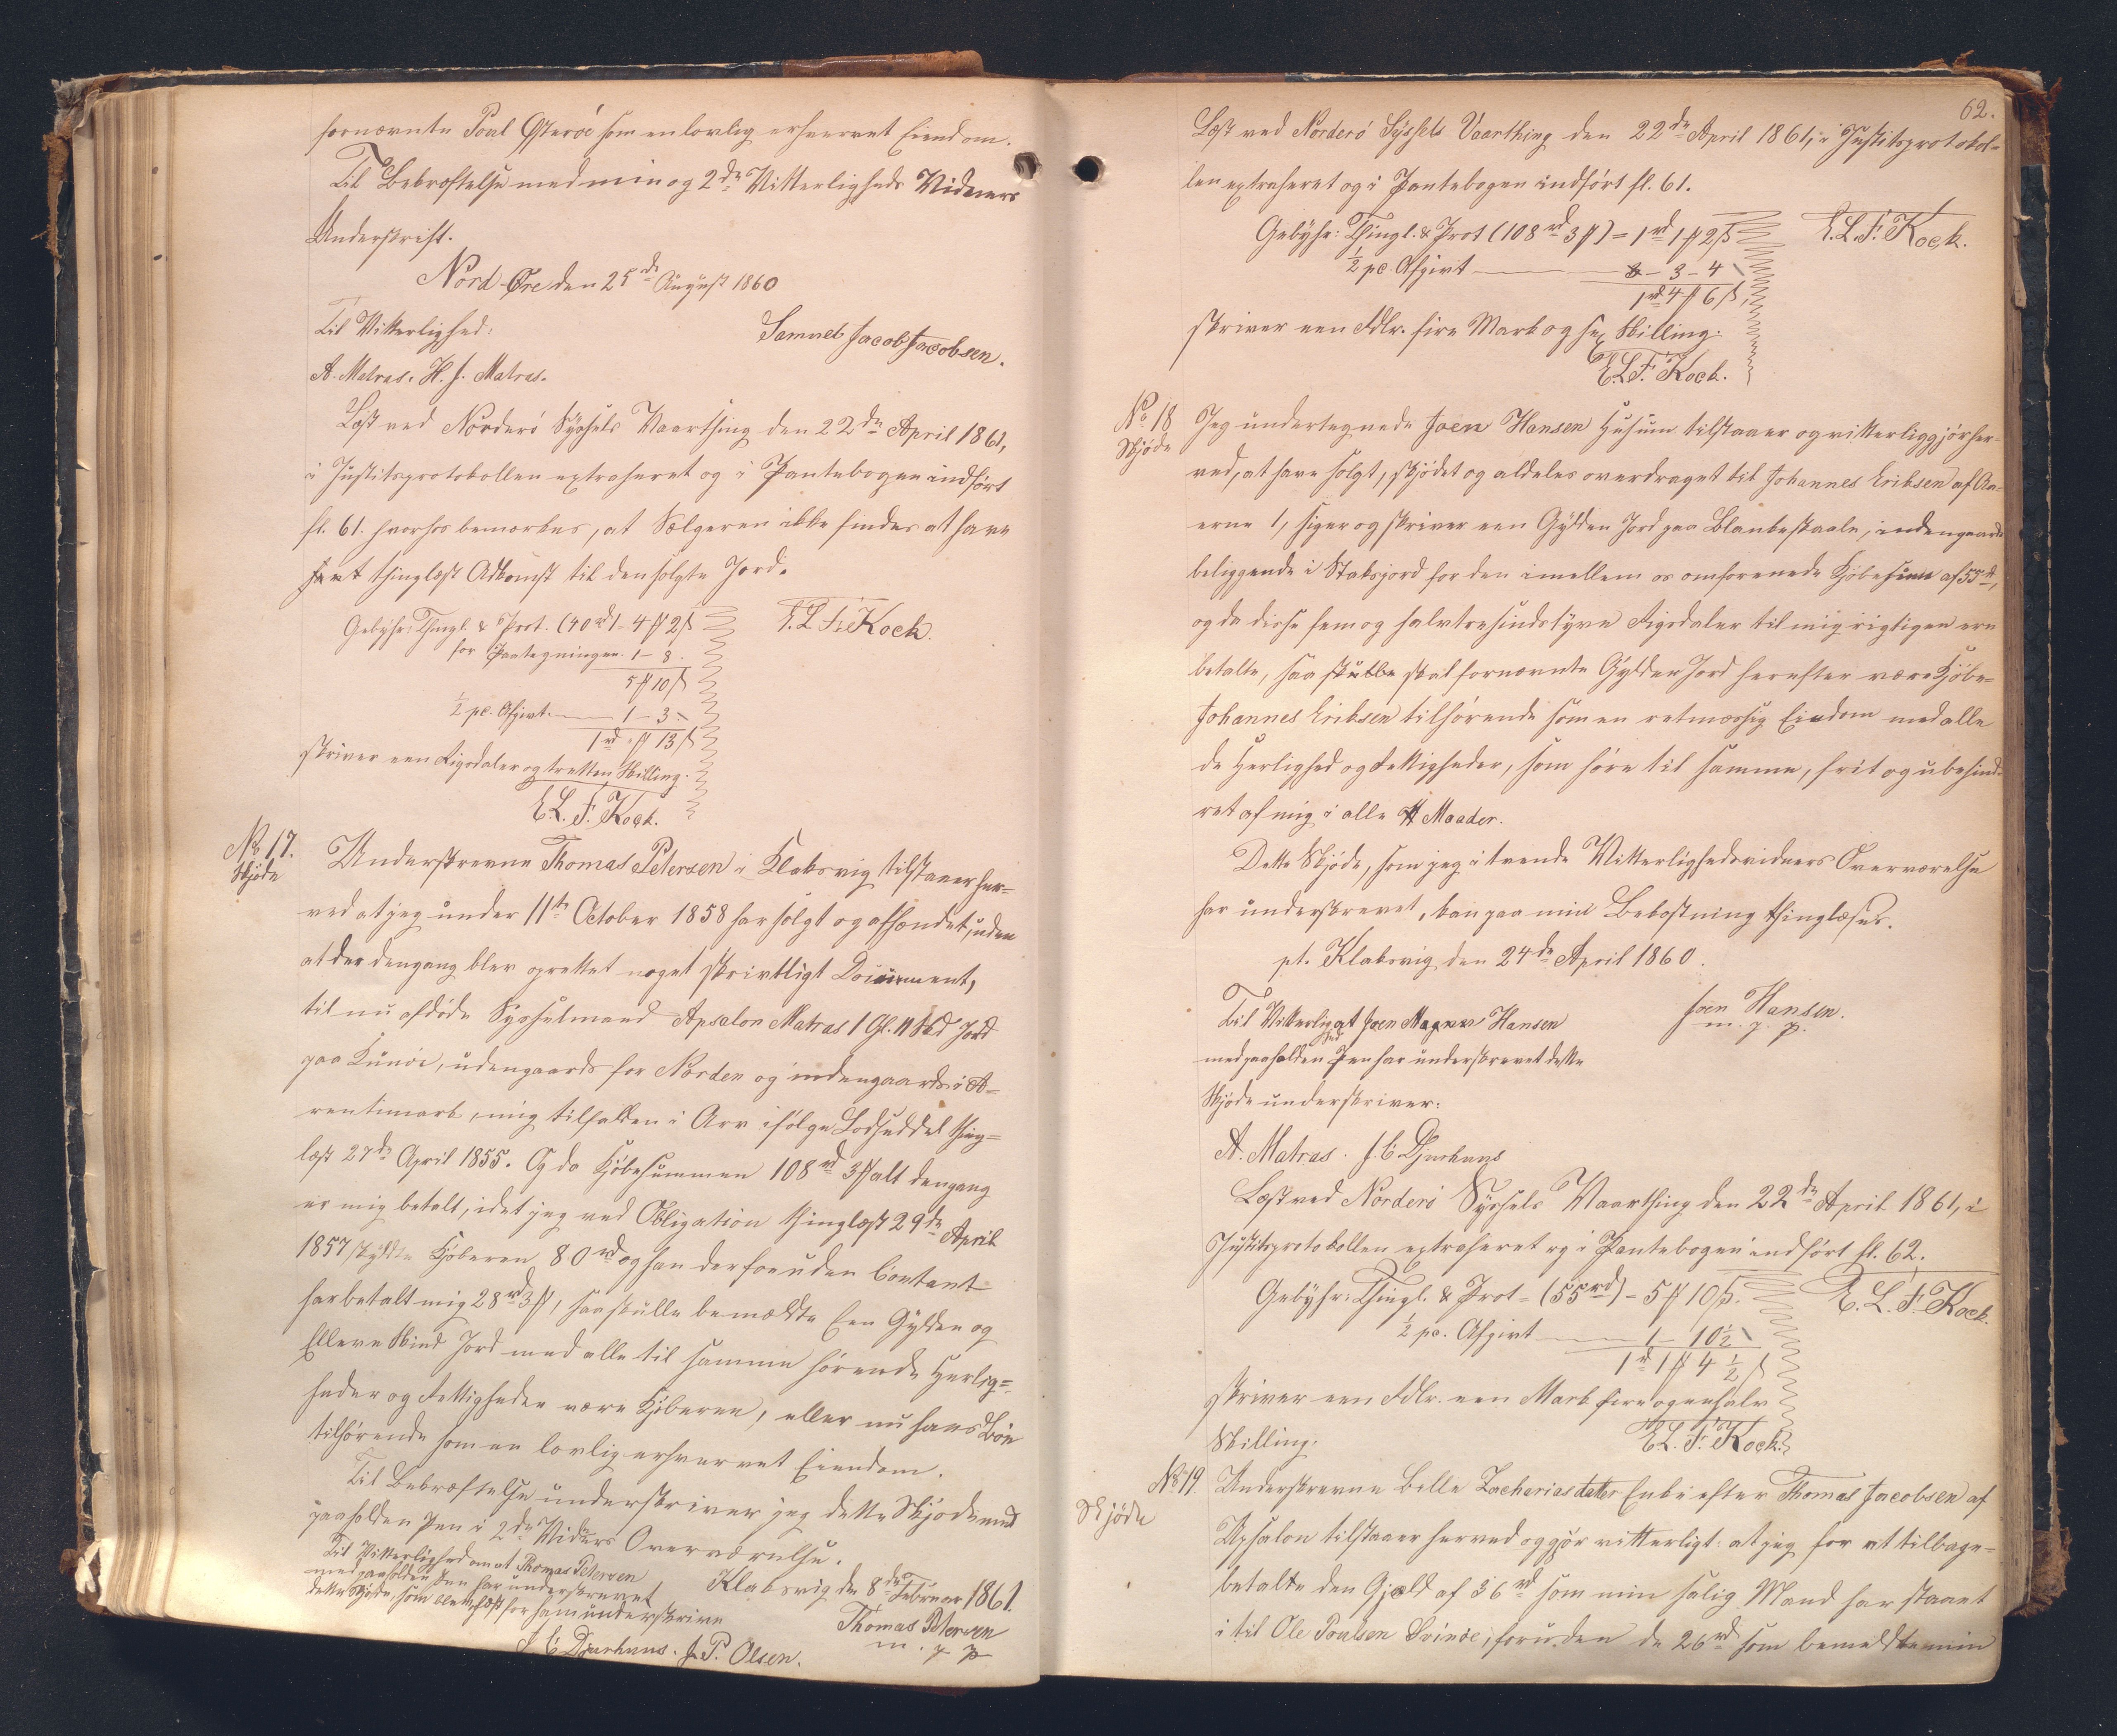 fornævnte Poul Østerøe som en lovlig erhvervet Eiendom.
Til Bekræftelse med min og 2de Vitterligheds Vidners
Underskrift.
Nord-Øre den 25de August 1860
Til Vitterlighed:
Samuel Jacob Jacobsen.
A. Matras. H. J. Matras.
Læst ved Norderö Syssels Vaarthing den 22de April 1861,
i Justitsprotokollen extraheret og i Pantebogen indført
fl. 61. hvorhos bemærkes, at Sælgeren ikke findes at have
havt thinglæst Adkomst til den solgte Jord.
Gebyhr: Thingl. & Prot. (40rd) - 4 ß 2 ß
for Paategningen. 1 - 8.
5 ß 10 ß
½ pc. Afgivt. 1 - 3 -
1rd " ß 13 ß
E. L. Fr. Kock.
skriver een Rigsdaler og tretten Skilling.
E. L. F. Kock.
No 17.
Skjøde
Underskrevne Thomas Petersen i Klaksvig tilstaaer her=
ved at jeg under 11te October 1858 har solgt og afhændet, uden
at der dengang blev oprettet noget skrivtligt Document,
til nu afdøde Sysselmand Apsalon Matras 1 Gl. 11 Skd Jord
paa Kunöe, udengaards for Norden og indengaards i A=
rentimark, mig tilfalden i Arv ifølge Lodseddel thing=
læst 27de April 1855. Og da Kjöbesummen 108rd 3 ß alt dengang
er mig betalt, idet jeg ved Obligation thinglæst 29de April
1857 skyldte Kjöberen 80rd og han derforuden Contant
har betalt mig 28rd 3 ß, saa skulle bemældte Een Gylden og
Elleve Skind Jord med alle til samme hørende Herlig=
heder og Rettigheder være Kjöberen, eller nu hans Bo
tilhørende som en lovlig erhvervet Eiendom.
Til Bekræftelse underskriver jeg dette Skjøde med
paaholden Pen i 2de Vidners Overværelse.
Klaksvig den 8de Februar 1861.
Til Vitterlighed om at Thomas Petersen
med paaholden Pen har underskrevet
dette Skjøde, som blev læst for ham underskrive
Thomas Petersen
m. p. p.
J. C. Djurhuus. J. P. Olsen.
62.
Læst ved Norderö Syssels Vaarthing den 22de April 1861, i Justitsprotokol=
len extraheret og i Pantebogen indført fl. 61.
Gebyhr: Thingl. & Prot (108rd 3 ß) = 1rd 1 ß 2 ß
½ pc. Afgivt - 3 - 4
1rd 4 ß 6 ß
E. L. F. Kock.
skriver een Rdlr. fire Mark og sex Skilling.
E. L. F. Kock.
No 18
Skjøde
Jeg undertegnede Joen Hansen Husum tilstaaer og vitterliggjør her=
ved, at have solgt, skjødet og aldeles overdraget til Johannes Eriksen af Aa=
erne 1, siger og skriver een Gylden Jord paa Blankeskaale, indengaards
beliggende i Staksjord for den imellem os omforenede Kjöbesum af 55rd,
og da disse fem og halvtresindstyve Rigsdaler til mig rigtigen ere
betalte, saa skulle skal fornævnte Gylden Jord herefter være Kjöbe=
Johannes Eriksen tilhørende som en retmæssig Eiendom med alle
de Herlighed og Rettigheder, som høre til samme, frit og ubehind=
ret af mig i alle Maader.
Dette Skjøde, som jeg i tvende Vitterlighedsvidners Overværelse
har underskrevet, kan paa min Bekostning thinglæses.
pt. Klaksvig den 24de April 1860.
Til Vitterlighed at Joen Magnus Hansen
med paaholden Pen har underskrevet dette
Skjøde underskriver:
Joen Hansen.
m. p. p.
A. Matras. J. C. Djurhuus
Læst ved Norderö Syssels Vaarthing den 22de April 1861, i
Justitsprotokollen extraheret og i Pantebogen indført fl. 62.
Gebyhr: Thingl. & Prot = (55rd) - 5 ß 10 ß.
½ pc. Afgivt 1 - 10½
1rd 1 ß 4½ ß
E. L. F. Kock.
skriver een Rdlr. een Mark fire og en halv
Skilling.
E. L. F. Kock.
No 19.
Skjøde
Underskrevne Bille Zachariasdatter Enke efter Thomas Jacobsen af
Apsalon tilstaaer herved og gjør vitterligt: at jeg for at tilbage=
betalte den Gjæld af 36rd som min salig Mand har staaet
i til Ole Poulsen Svinöe, foruden de 26rd som bemeldte min